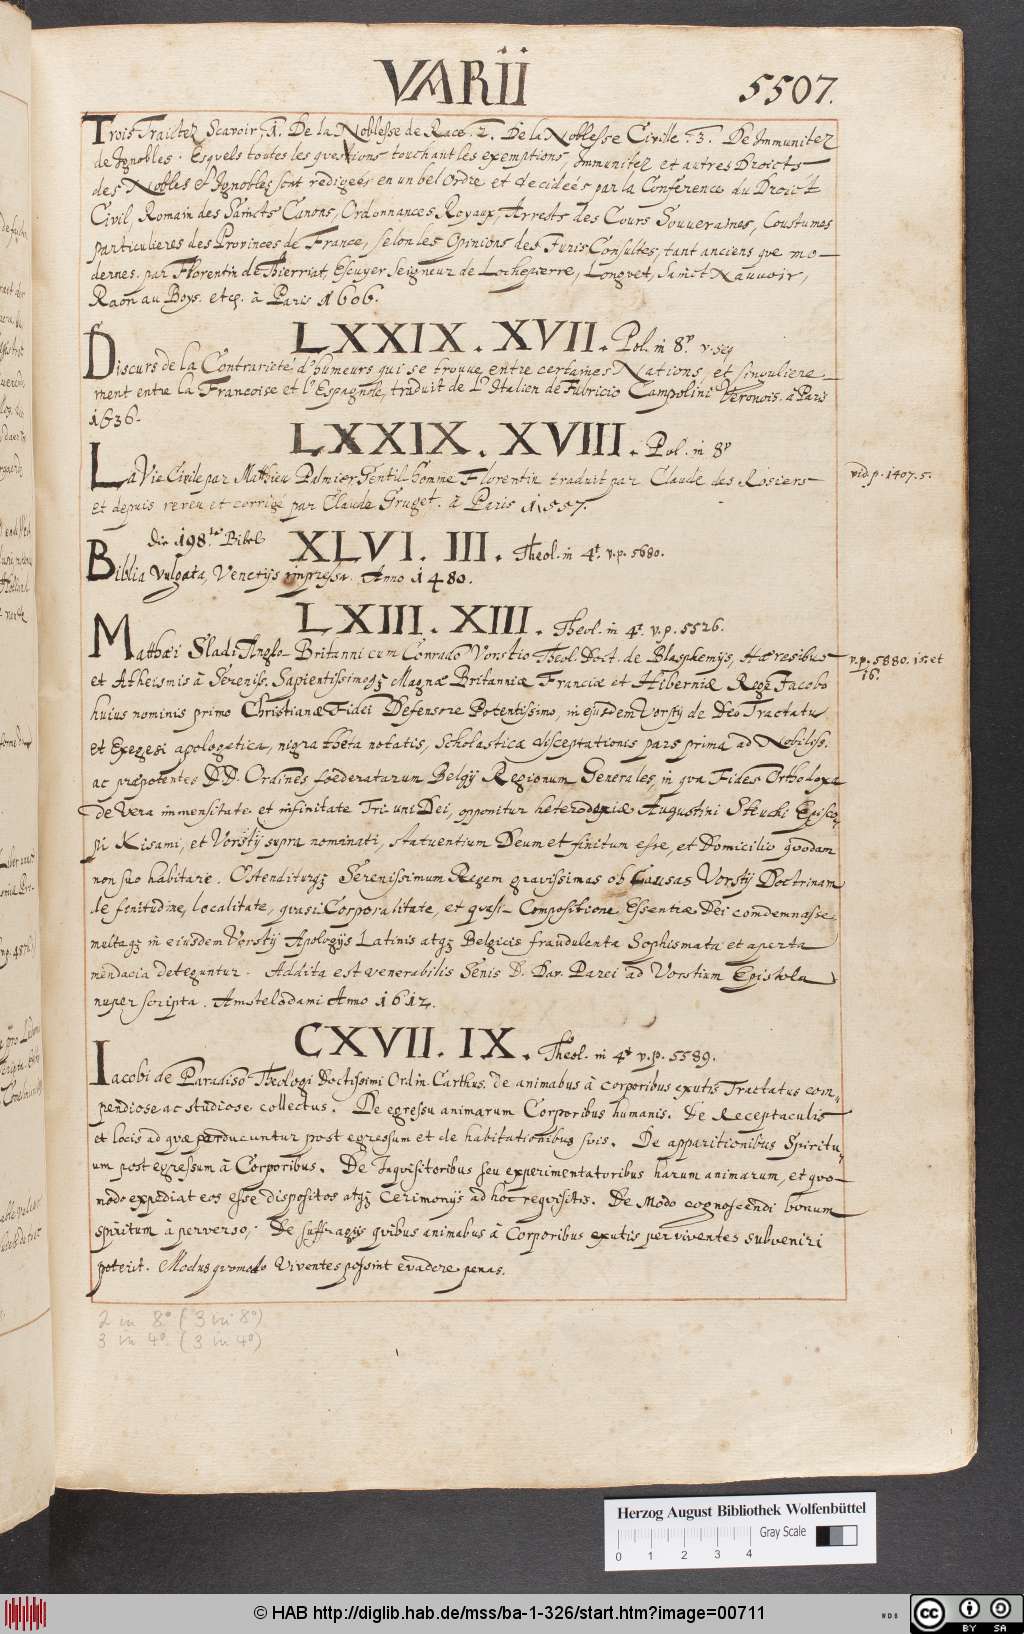 VARII
5507.
Trois Traictez Scavoir, 1. De la Noblesse de Race. 2. De la Noblesse Civille. 3. De Immunitez
de Ignobles. Esquels toutes les questions touchant les exemptions, Immunitez et autres Droicts
des Nobles & Ignobles sont redigeés en un bel Ordre et decideés par la Conference du Droict
Civil, Romain des Saincts Canons, Ordonnances Royaux, Arrests des Cours Souveraines, Coustumes
particulieres des Provinces de France, selon les Opinions des Juris Consultes, tant anciens que mo-
dernes. par Florentin de Thierriat, Escuyer Seigneur de Lochepierre, Longvet, Sainct Nauvoir,
Raon au Boys. etc. à Paris 1606.
LXXIX. XVII. Pol. in 8º v. seq
Discurs de la Contrarieté d'humeurs qui se trouve entre certaines Nations, et singuliere-
ment entre la Francoise et l'Espagnole, traduit de l'Italien de Fabricio Campolini Veronois. à Paris
1636.
LXXIX. XVIII. Pol. in 8º
La Vie Civile par Matthieu Palmier Gentil-homme Florentin traduit par Claude des Rosiers
et depuis reveu et corrigé par Claude Gruget. à Paris 1557.
vid. p. 1407. 5.
die 198.te Bibel
XLVI. III. Theol. in 4º. v. p. 5680.
Biblia Vulgata, Venetijs impressa. Anno 1480.
LXIII. XIII. Theol. in 4º. v. p. 5526.
Matthæi Sladi Anglo-Britanni cum Conrado Vorstio Theol. Doct. de Blasphemijs, Hæresibus
et Atheismis à Sereniss. Sapientissimoq3 Magnæ Britanniæ Franciæ et Hiberniæ Rege Jacobo
v. p. 5880. 15. et
16.
huius nominis primo Christianæ Fidei Defensore Potentissimo, in ejusdem Vorstij de Deo Tractatu
et Exegesi apologetica, nigra theta notatis, Scholasticæ disceptationis pars prima ad Nobiliss.
ac præpotentes DD. Ordines foederatarum Belgij Regionum Generales, in qva Fides Orthodoxa
de Vera immensitate et infinitate Tri uni Dei, opponitur heterodoxiæ Augustini Steuchi Episco-
pi Kisami, et Vorstij supra nominati, statuentium Deum et finitum esse, et Domicilio qvodam
non suo habitare. Ostenditurq3 Serenissimum Regem gravissimas ob Causas Vorstij Doctrinam
de finitudine, localitate, qvasi-Corporalitate, et qvasi-Compositione Essentiæ Dei comdemnasse,
multaq3 in eiusdem Vorstij Apologijs Latinis atq3 Belgicis fraudulenta Sophismata et aperta
mendacia deteguntur. Addita est venerabilis Senis D. Dav. Parei ad Vorstium Epistola
nuper scripta. Amstelodami Anno 1612.
CXVII. IX. Theol. in 4º v. p. 5589.
Iacobi de Paradiso Theologi Doctissimi Ordin. Carthus. de animabus à corporibus exutis Tractatus com-
pendiose ac studiose collectus. De egressu animarum Corporibus humanis. De Receptaculis
et locis ad qvæ perducuntur post egressum et de habitationibus suis. De apparitionibus Spiritu-
um post egressum à Corporibus. De Inqvisitoribus seu experimentatoribus harum animarum, et qvo-
modo expediat eos esse dispositos atq3 Cerimonijs ad hoc reqvisitis. De Modo cognoscendi bonum
spiritum à perverso, De suffragijs qvibus animabus à Corporibus exutis per viventes subveniri
poterit. Modus qvomodo Viventes possint evadere penas.
2 in 8º (3 in 8º)
3 in 4º (3 in 4º)
Herzog August Bibliothek Wolfenbüttel
Gray Scale
0 1 2 3 4
© HAB http://diglib.hab.de/mss/ba-1-326/start.htm?image=00711
BY SA